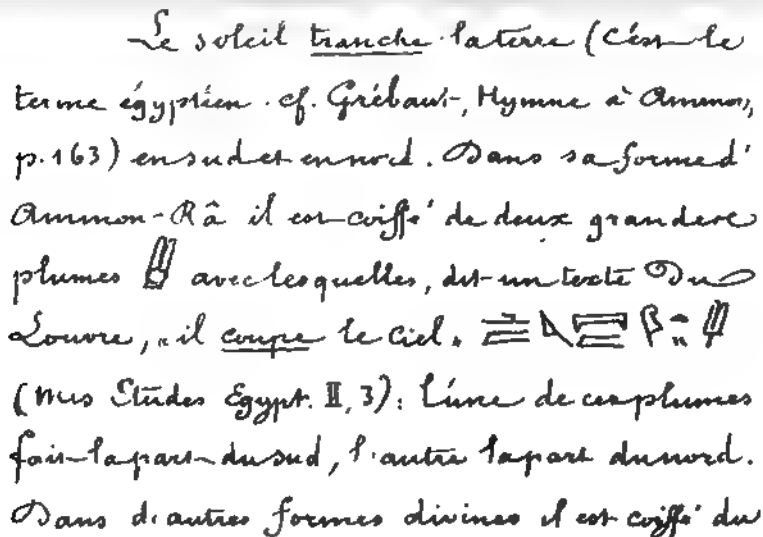 Le soleil tranche la terre (c'est le
terme égyptien. cf. Grébaut, Hymne à Ammon,
p. 163) en sud et en nord. Dans sa forme d'
Ammon-Râ il est coiffé de deux grandes
plumes avec lesquelles, dit un texte du
Louvre, « il coupe le ciel »
(mes Etudes Egypt. II, 3): l'une de ces plumes
fait la part du sud, l'autre la part du nord.
Dans d'autres formes divines il est coiffé du